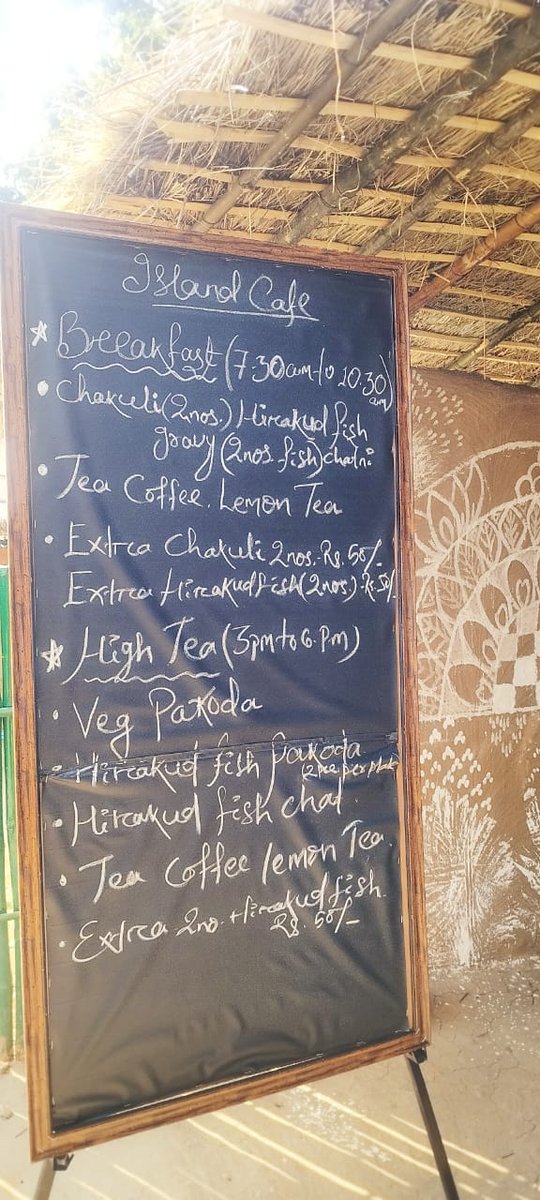 Island Cafe
* Breakfast (7.30am to 10.30 am)
• Chakuli (2nos.) Hirakud fish
gravy (2nos. fish) chatni
• Tea Coffee. Lemon Tea
• Extra Chakuli 2nos.-Rs. 50/-
Extra Hirakud fish (2nos.)-Rs. 50/-
* High Tea (3pm to 6.Pm)
• Veg Pakoda
• Hirakud fish pakoda
(2 no per plate)
• Hirakud fish chat.
• Tea Coffee lemon Tea.
• Extra 2no. Hirakud fish.
Rs. 50/-